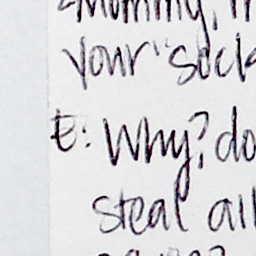 "Mommy, I
your sock
E: Why? do
steal all